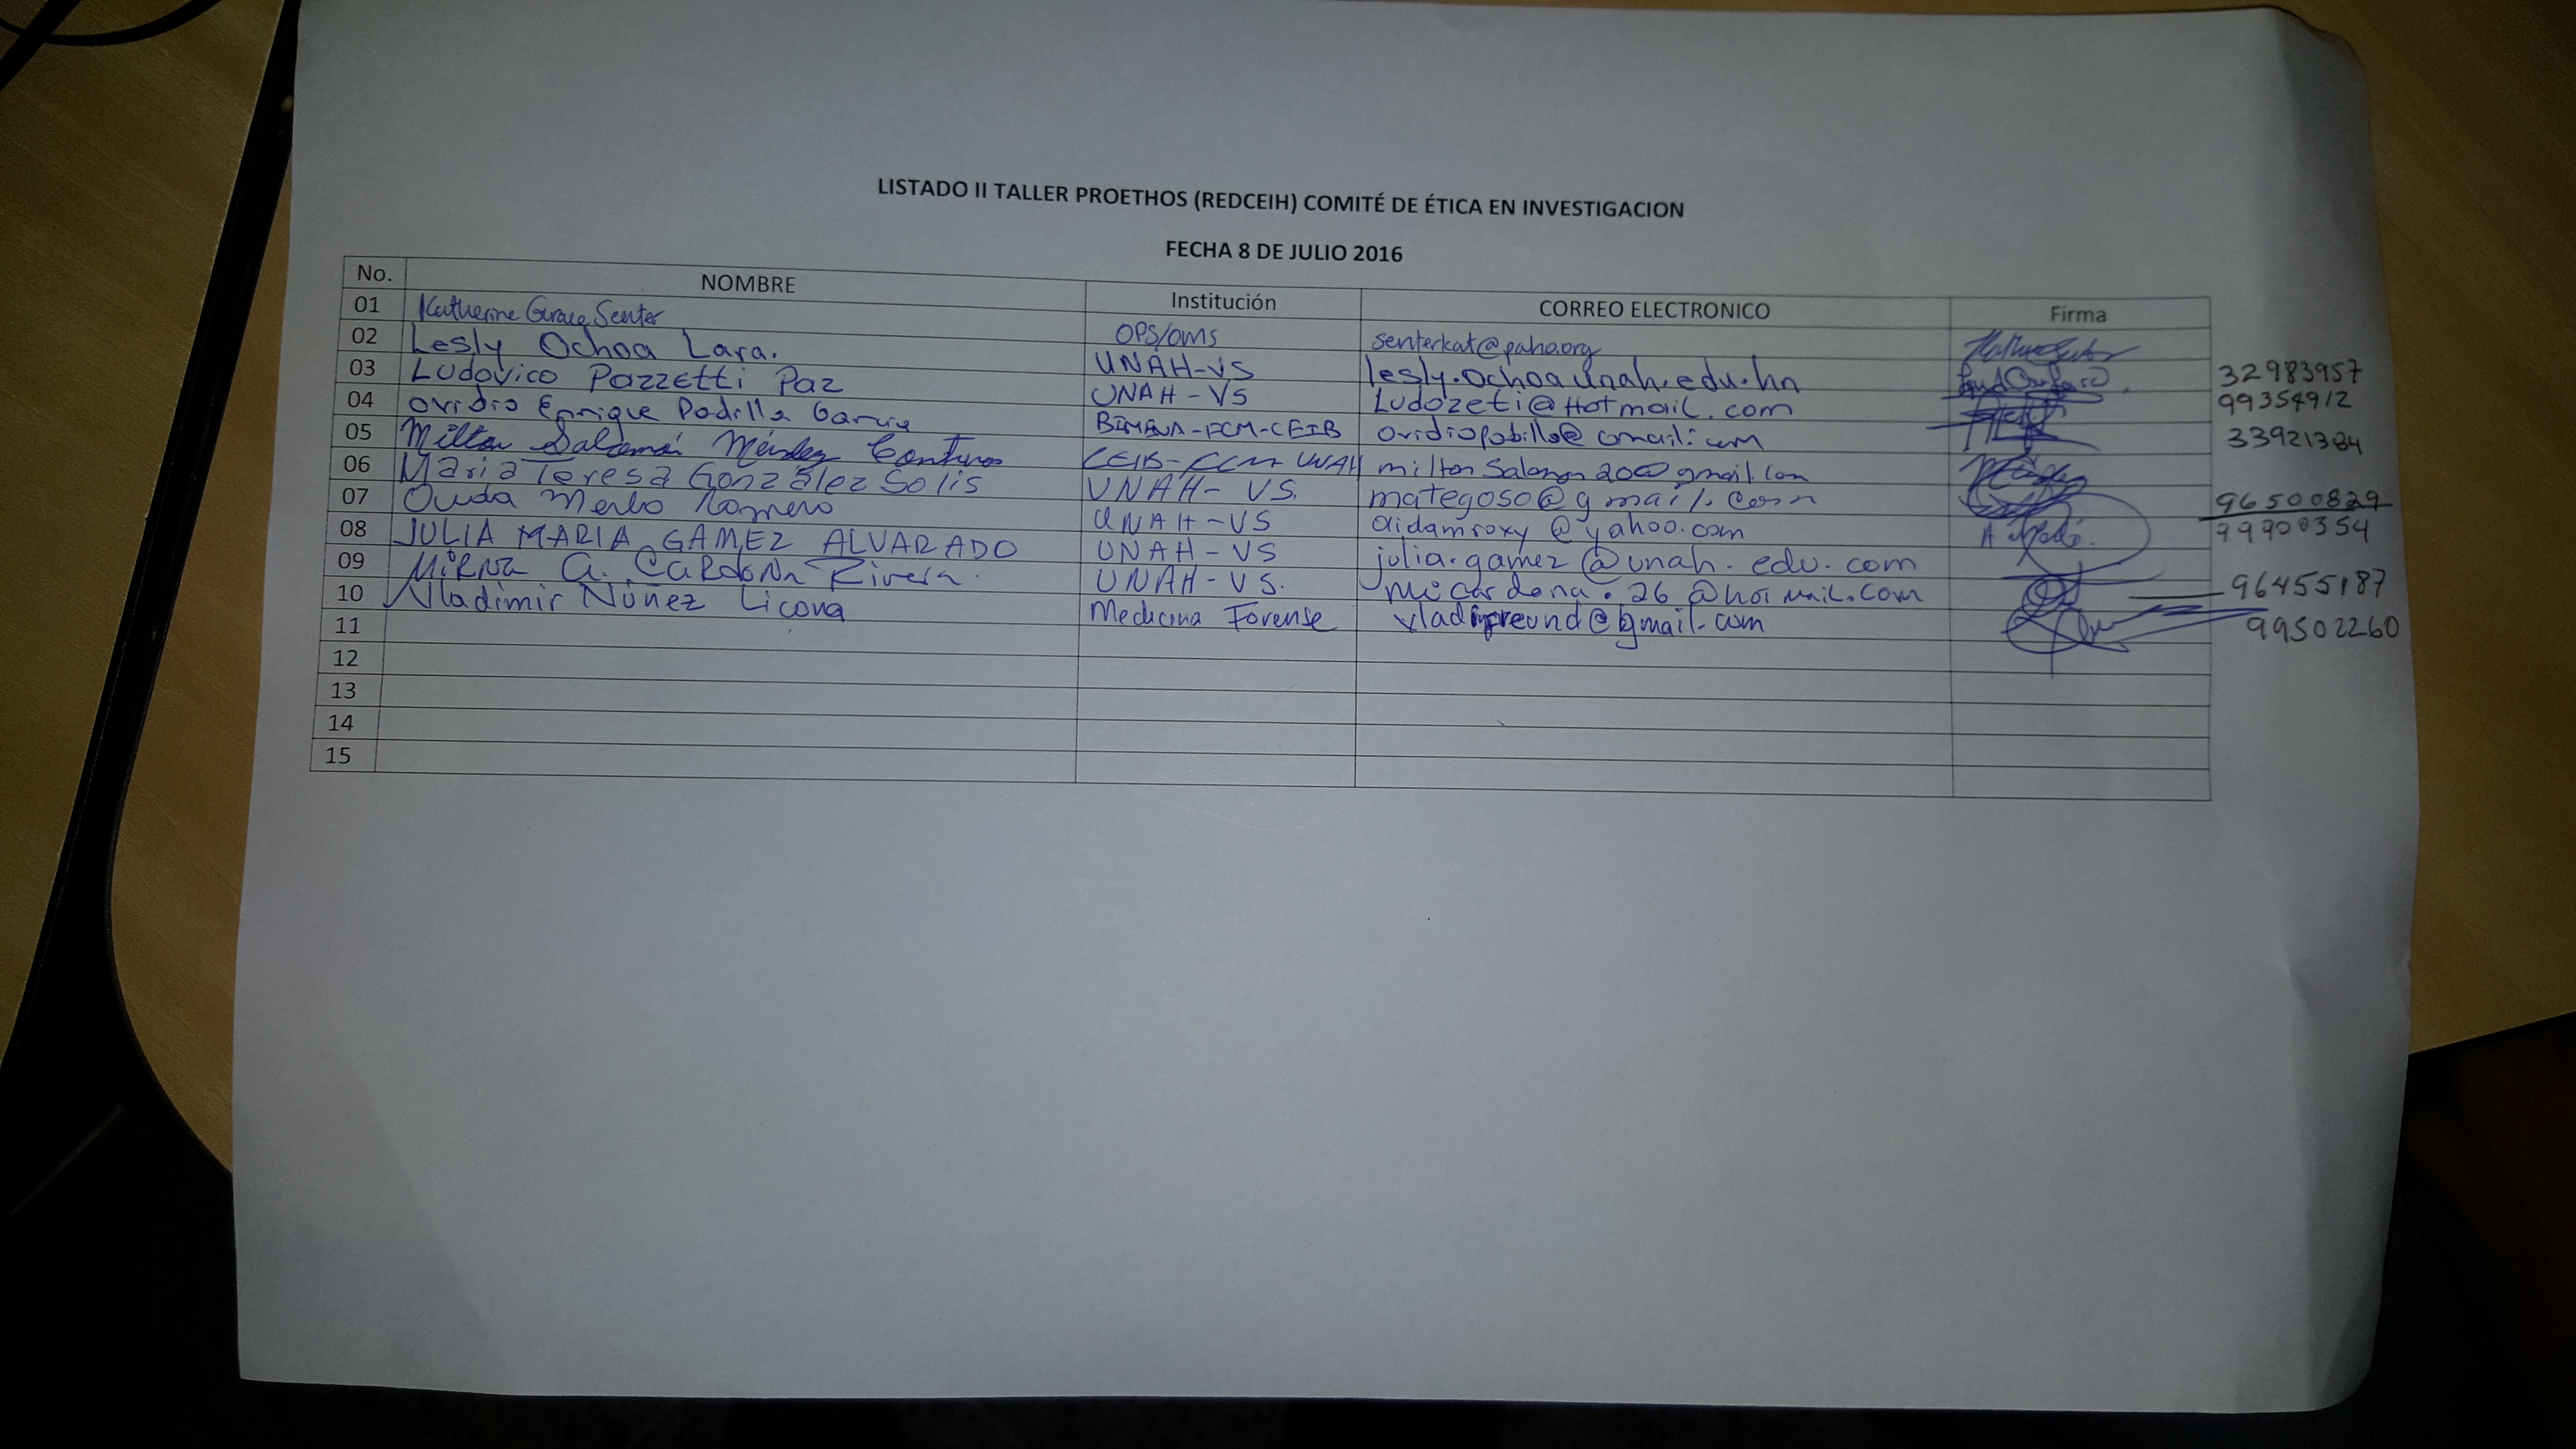 LISTADO II TALLER PROETHOS (REDCEIH) COMITÉ DE ÉTICA EN INVESTIGACION
FECHA 8 DE JULIO 2016
No. NOMBRE Institución CORREO ELECTRONICO Firma
01 Katherine Grace Senter OPS/OMS senterkat@paho.org
02 Lesly Ochoa Lara. UNAH-VS lesly.ochoaunah.edu.hn 32983957
03 Ludovico Pazzetti Paz UNAH-VS Ludozeti@Hotmail.com 99354912
04 Ovidio Enrique Padilla García BIMENA-FCM-CEIB 33921384
05 Milton Salomón Méndez CEIB-FCM UNAH
06 Maria Teresa González Solis UNAH-VS. mategoso@gmail.com 96500829
07 Merlo Romero UNAH-VS aidamroxy@yahoo.com 99900354
08 JULIA MARIA GAMEZ ALVARADO UNAH-VS julia.gamez@unah.edu.com
09 MIRNA A. CARDONA Rivera. UNAH-VS. micardona.26@hotmail.com 96455187
10 Vladimir Núñez Licona Medicina Forense 99502260
11
12
13
14
15